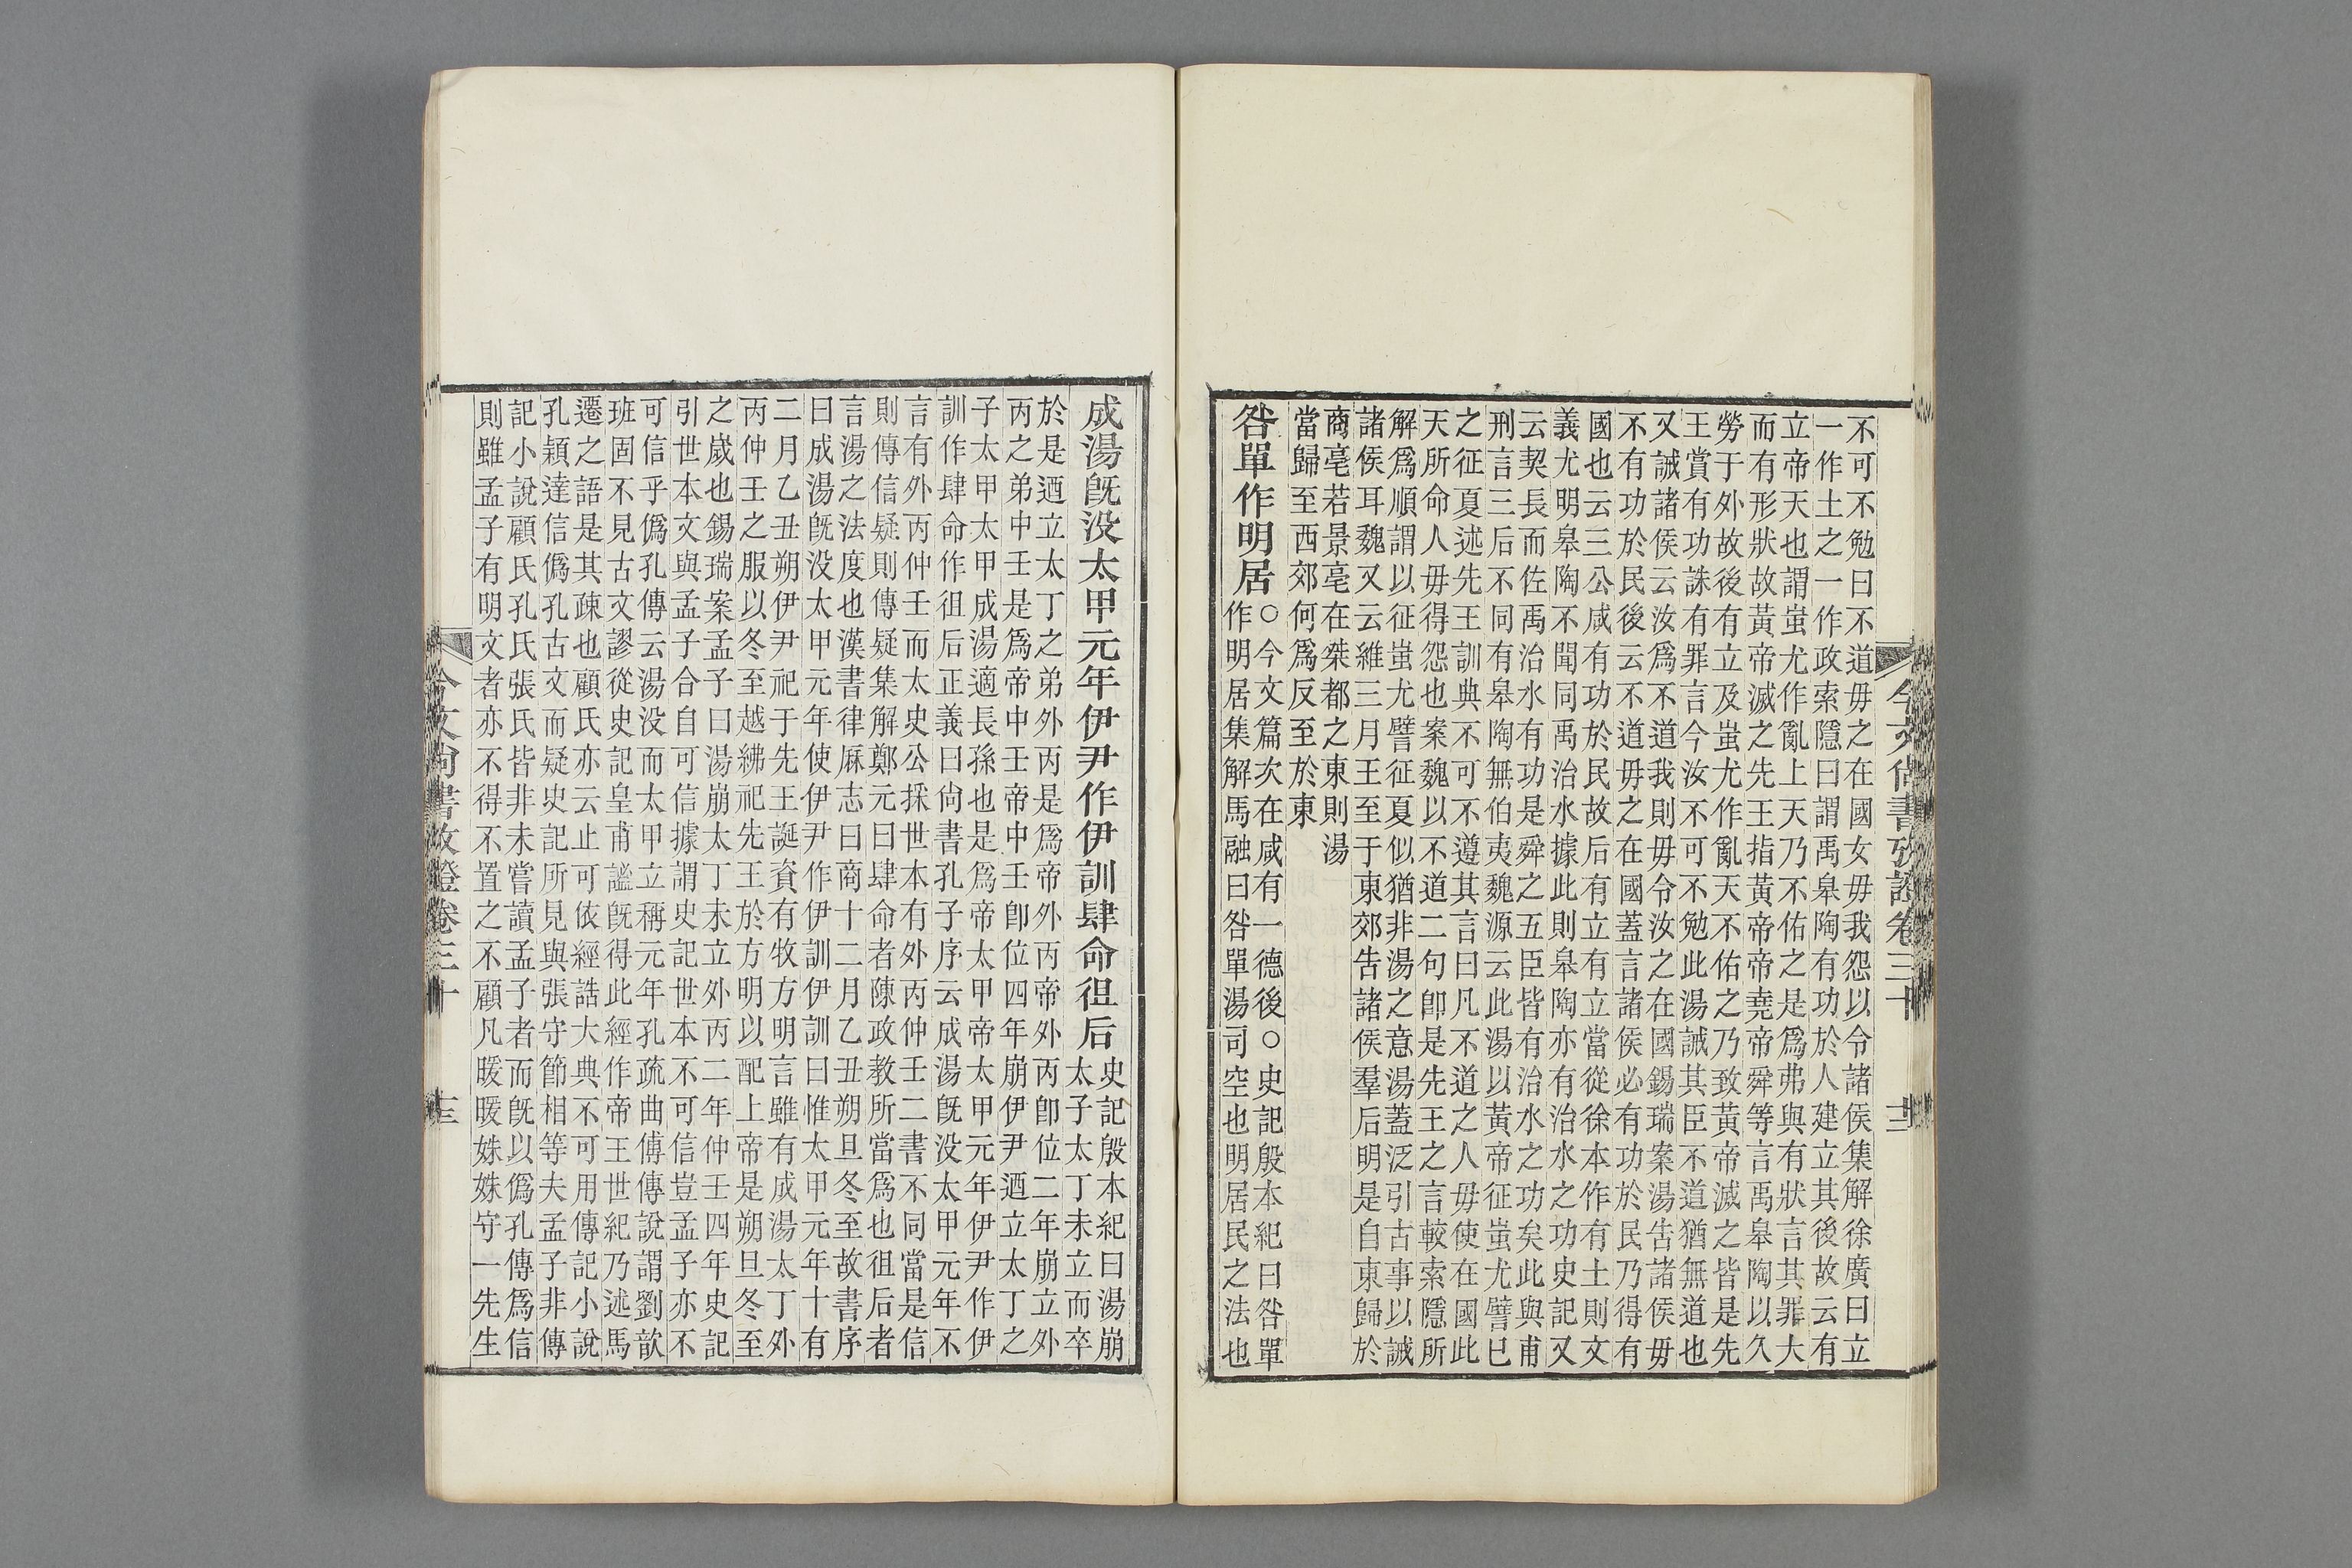 不可不勉曰不道毋之在國女毋我怨以令諸侯集解徐廣曰立
一作土之一作政索隱曰謂禹皋陶有功於人建立其後故云有
立帝天也謂蚩尤作亂上天乃不佑之是爲弗與有狀言其罪大
而有形狀故黃帝滅之先王指黃帝帝堯帝舜等言禹皋陶以久
勞于外故後有立及蚩尤作亂天不佑之乃致黃帝滅之皆是先
王賞有功誅有罪言今汝不可不勉此湯誡其臣不道猶無道也
又誡諸侯云汝爲不道我則毋令汝之在國錫瑞案湯告諸侯毋
不有功於民後云不道毋之在國蓋言諸侯必有功於民乃得有
國也云三公咸有功於民故后有立有立當從徐本作有土則文
義尤明皋陶不聞同禹治水據此則皋陶亦有治水之功史記又
云契長而佐禹治水有功是舜之五臣皆有治水之功矣此與甫
刑言三后不同有皋陶無伯夷魏源云此湯以黃帝征蚩尤譬已
之征夏述先王訓典不可不遵其言曰凡不道之人毋使在國此
天所命人毋得怨也案魏以不道二句卽是先王之言較索隱所
解爲順謂以征蚩尤譬征夏似猶非湯之意湯蓋泛引古事以誡
諸侯耳魏又云維三月王至于東郊告諸侯羣后明是自東歸於
商亳若景亳在桀都之東則湯
當歸至西郊何爲反至於東
咎單作明居
○今文篇次在咸有一德後○史記殷本紀曰咎單
作明居集解馬融曰咎單湯司空也明居民之法也
今文尚書攷證卷三十
成湯旣没太甲元年伊尹作伊訓肆命徂后
史記殷本紀曰湯崩
太子太丁未立而卒
於是迺立太丁之弟外丙是爲帝外丙帝外丙卽位二年崩立外
丙之弟中壬是爲帝中壬帝中壬卽位四年崩伊尹迺立太丁之
子太甲太甲成湯適長孫也是爲帝太甲帝太甲元年伊尹作伊
訓作肆命作徂后正義曰尙書孔子序云成湯旣没太甲元年不
言有外丙仲壬而太史公採世本有外丙仲壬二書不同當是信
則傳信疑則傳疑集解鄭元曰肆命者陳政教所當爲也徂后者
言湯之法度也漢書律厤志曰商十二月乙丑朔旦冬至故書序
曰成湯旣没太甲元年使伊尹作伊訓伊訓曰惟太甲元年十有
二月乙丑朔伊尹祀于先王誕資有牧方明言雖有成湯太丁外
丙仲壬之服以冬至越紼祀先王於方明以配上帝是朔旦冬至
之歲也錫瑞案孟子曰湯崩太丁未立外丙二年仲壬四年史記
引世本文與孟子合自可信據謂史記世本不可信豈孟子亦不
可信乎僞孔傳云湯没而太甲立稱元年孔疏曲傅傳說謂劉歆
班固不見古文謬從史記皇甫謐旣得此經作帝王世紀乃述馬
遷之語是其疎也顧氏亦云止可依經誥大典不可用傳記小說
孔穎達信僞孔古文而疑史記所見與張守節相等夫孟子非傳
記小說顧氏孔氏張氏皆非未嘗讀孟子者而旣以僞孔傳爲信
則雖孟子有明文者亦不得不置之不顧凡暖暖姝姝守一先生
今文尚書攷證卷三十
十三